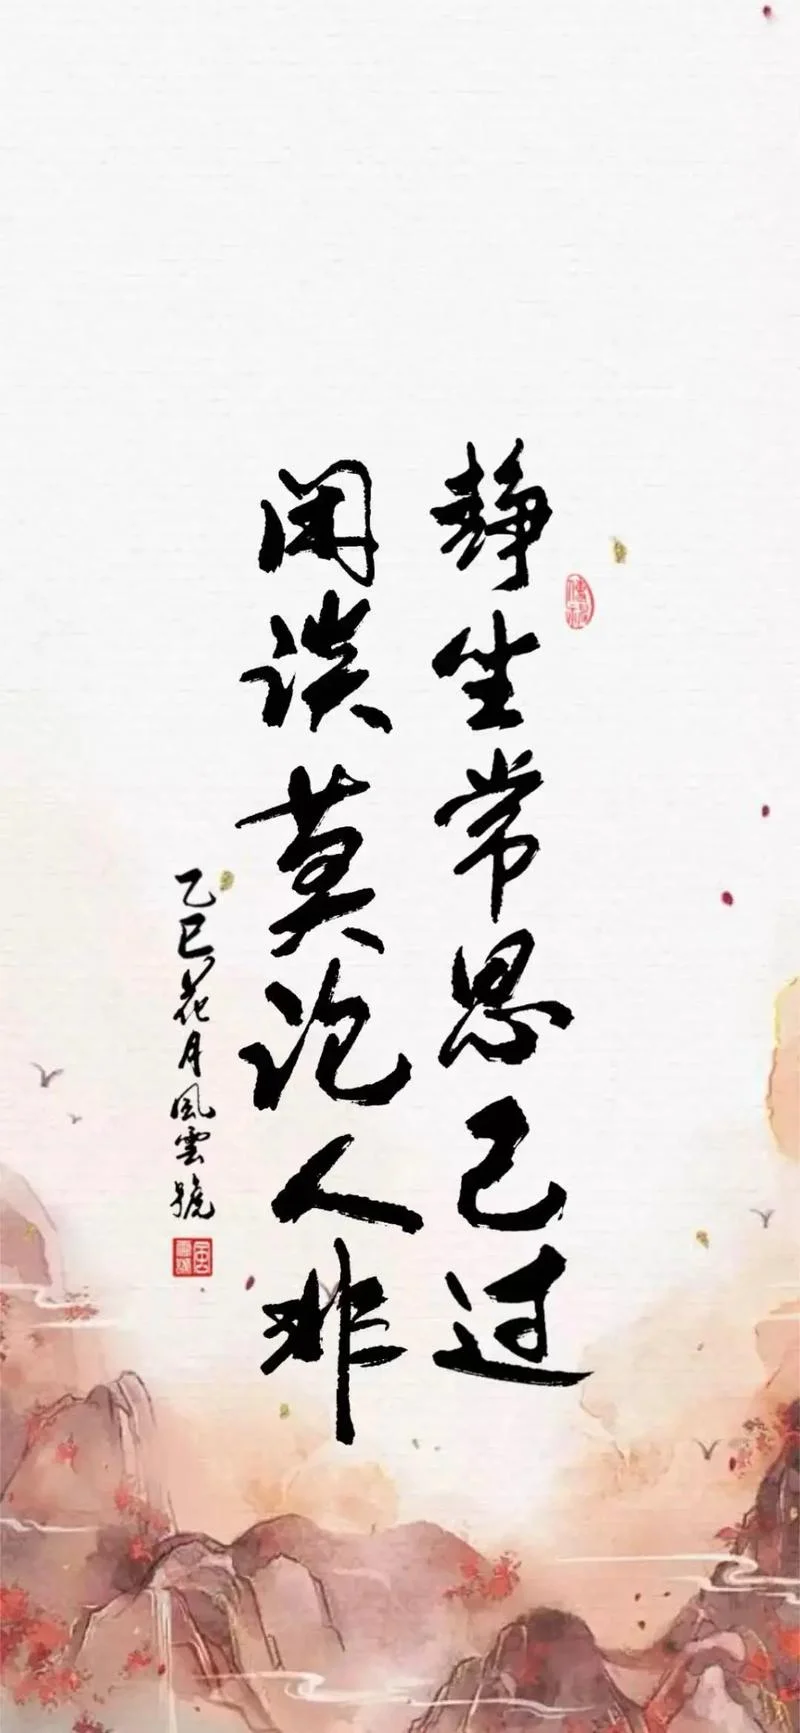 静坐常思己过
闲谈莫论人非
乙巳花月風雲號